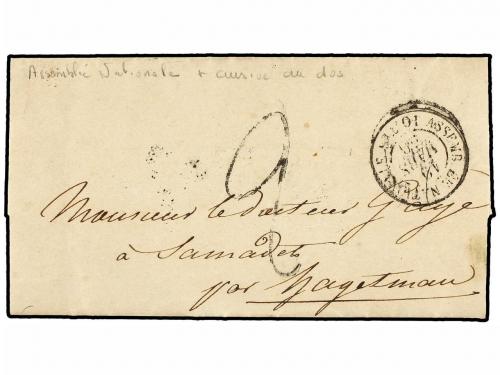 Assemblée Nationale + cursive au dos
ASSEMBLÉE NATIONALE
2
Monsieur le docteur
à Samadet
par Hagetmau